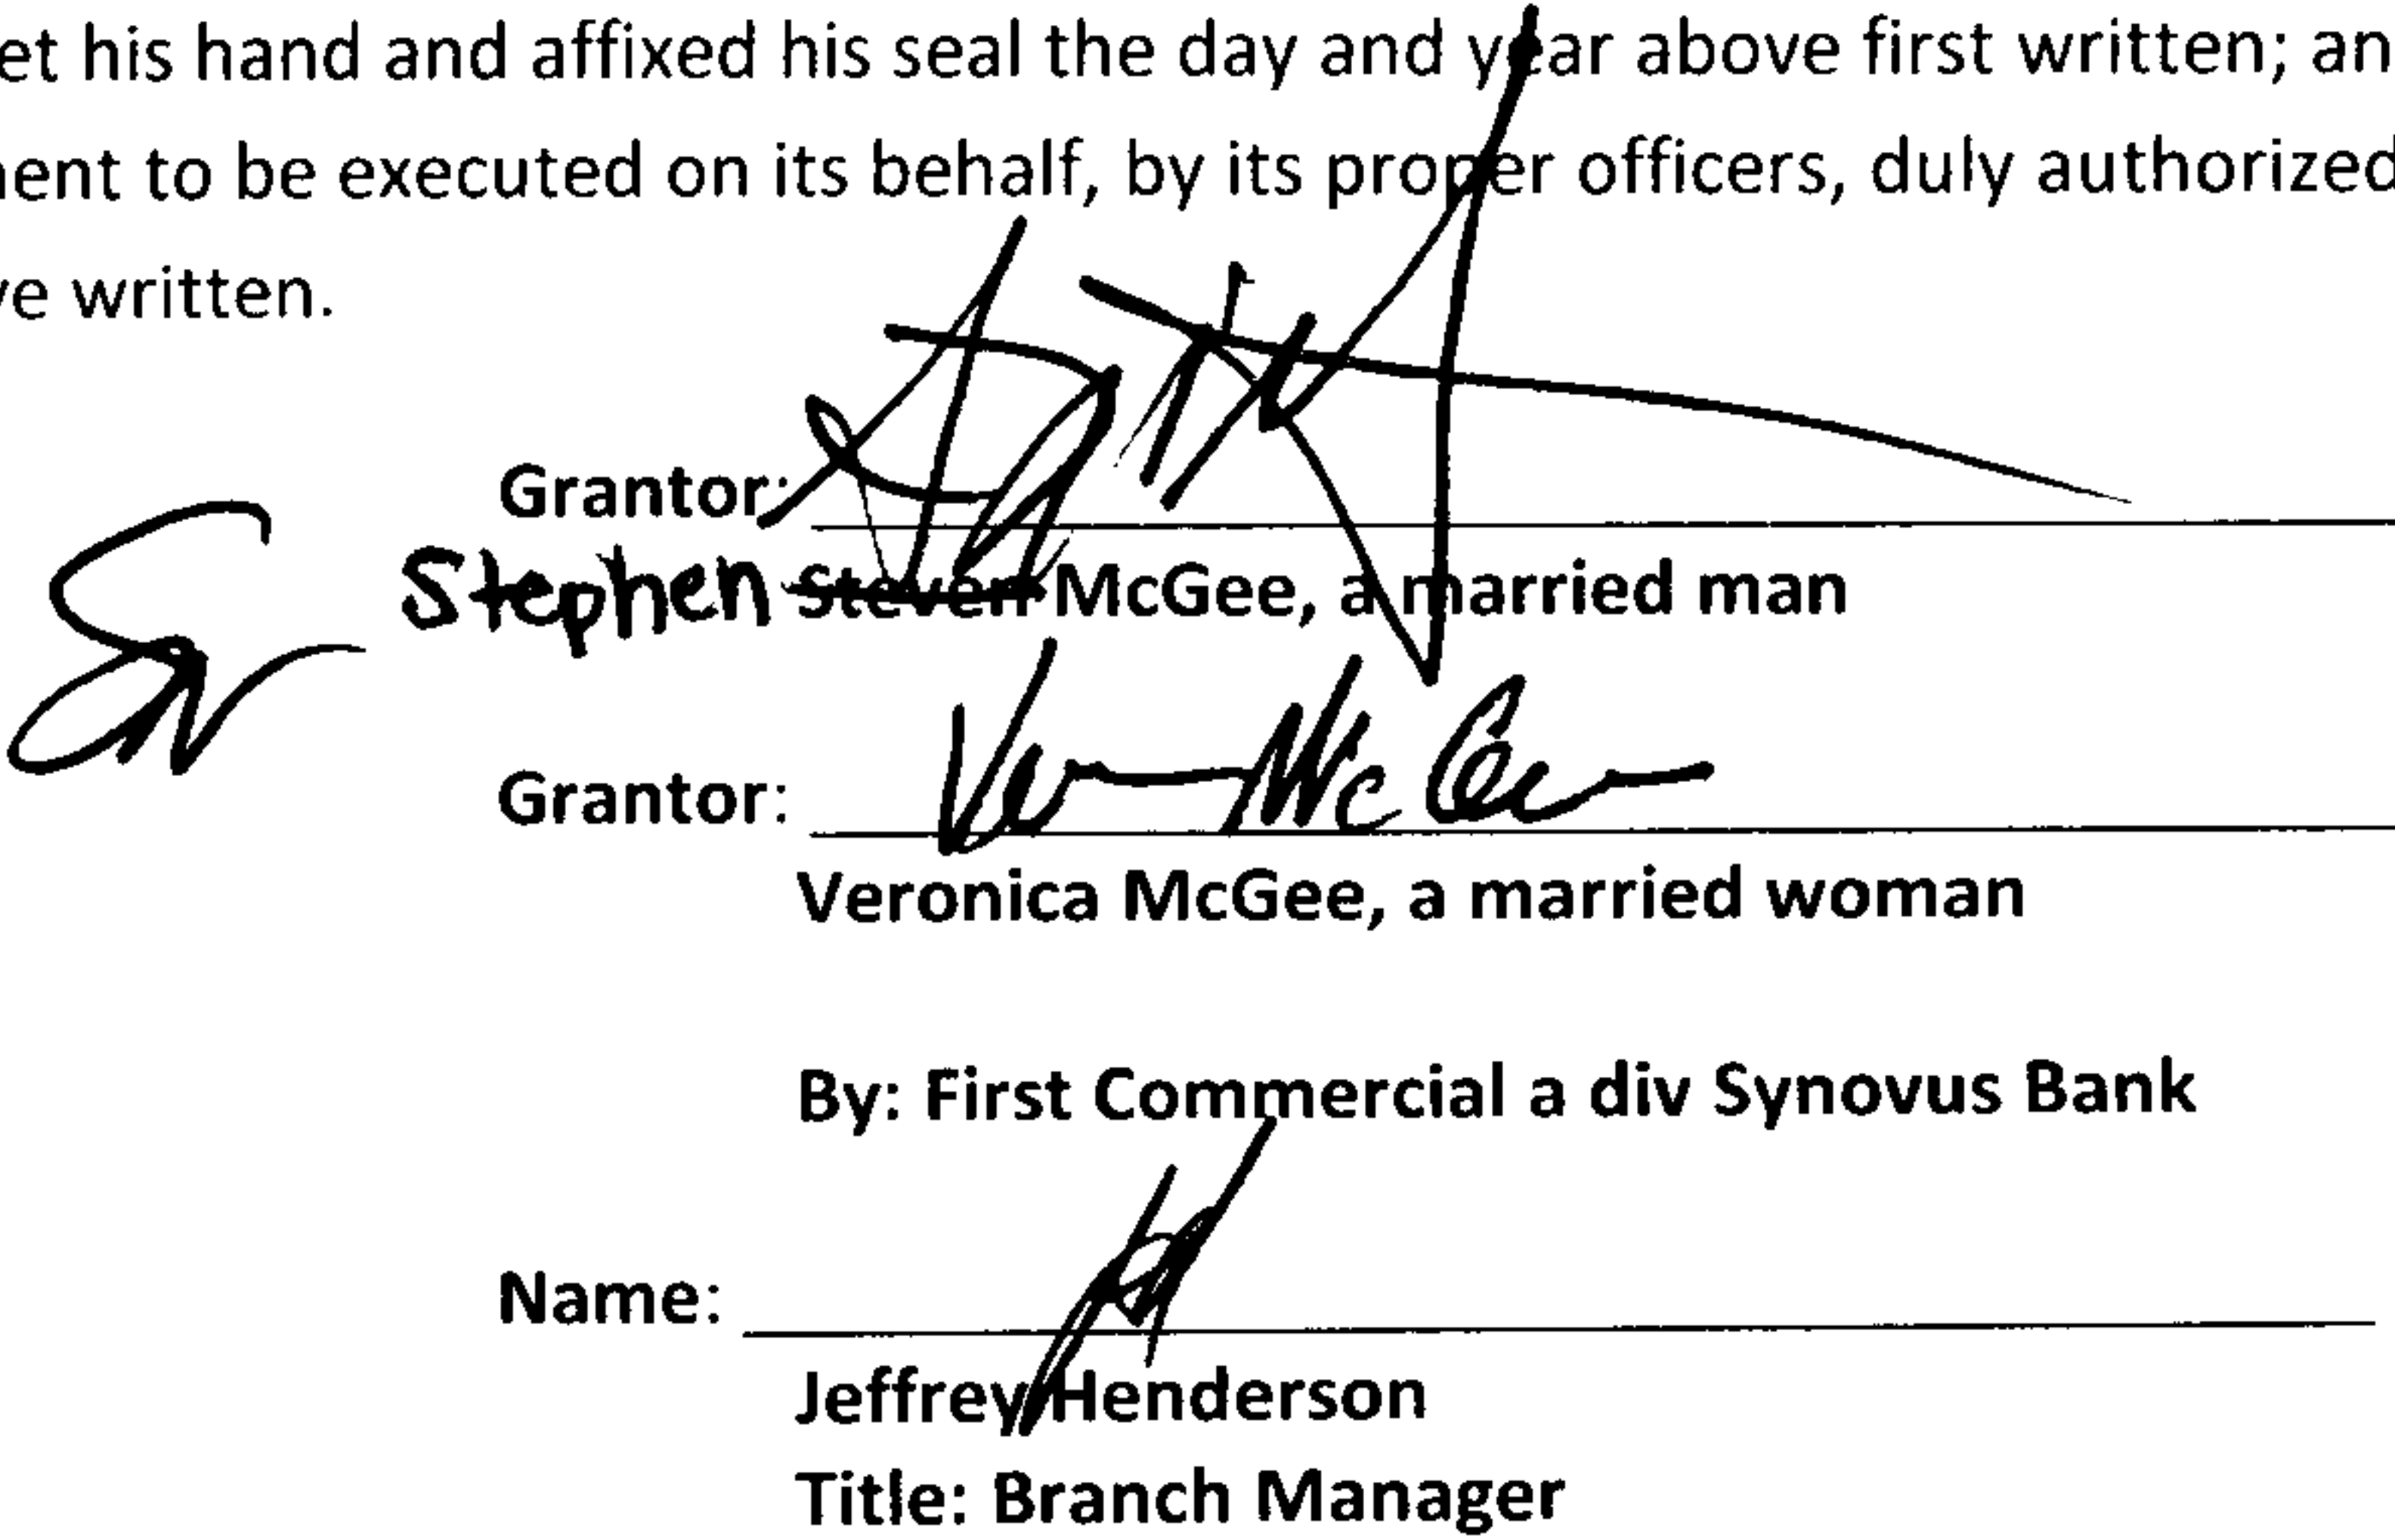 et his hand and affixed his seal the day and year above first written; an
nent to be executed on its behalf, by its proper officers, duly authorized
ve written.
Grantor:
Stephen Steven McGee, a married man
Grantor: Ver McGee
Veronica McGee, a married woman
By: First Commercial a div Synovus Bank
Name:
Jeffrey Henderson
Title: Branch Manager